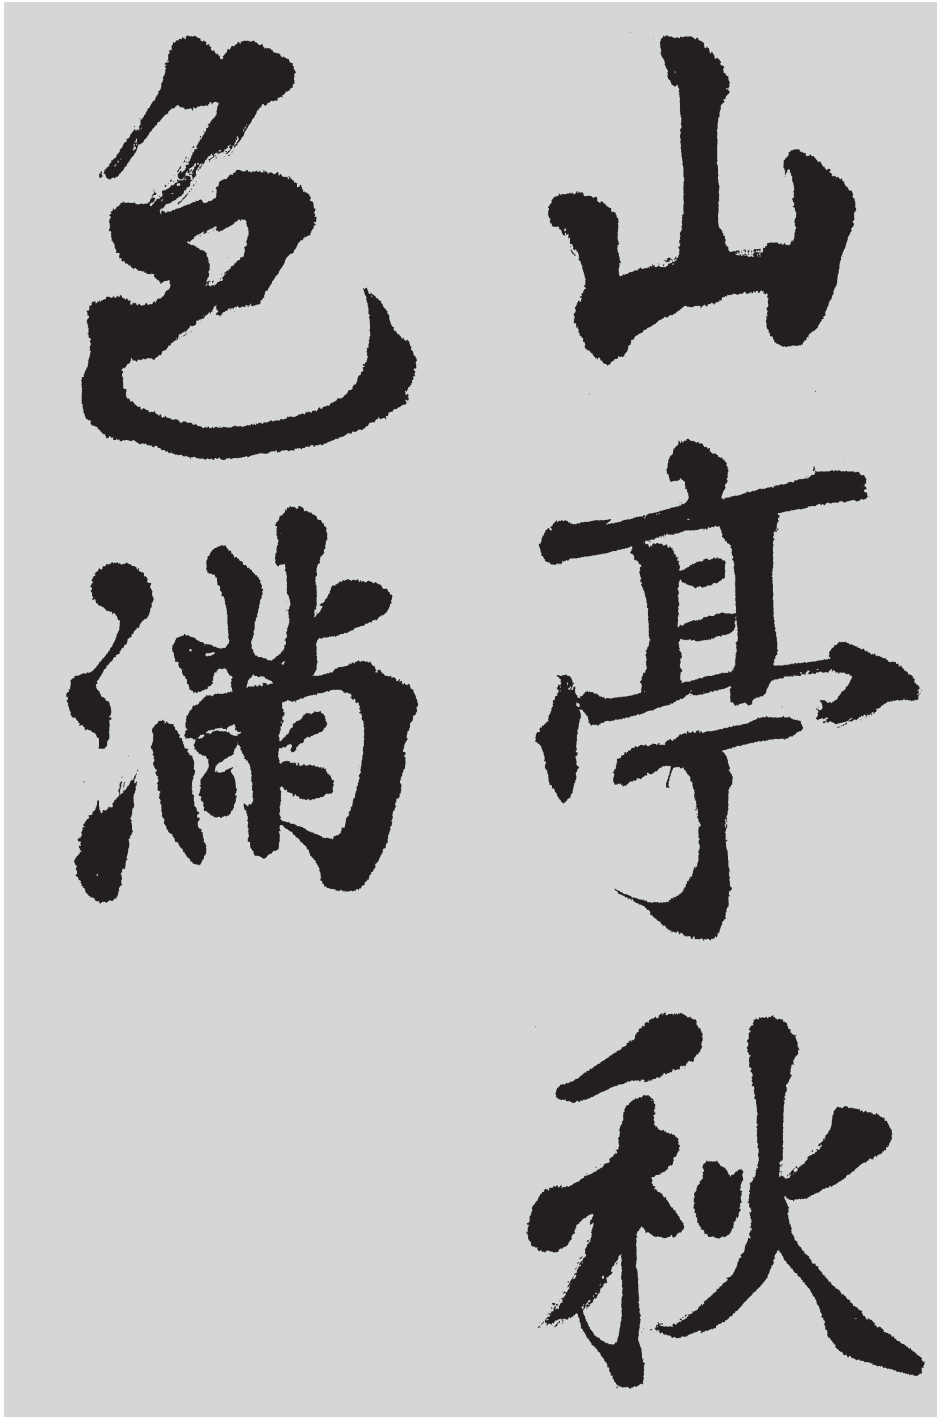 山亭秋
色满